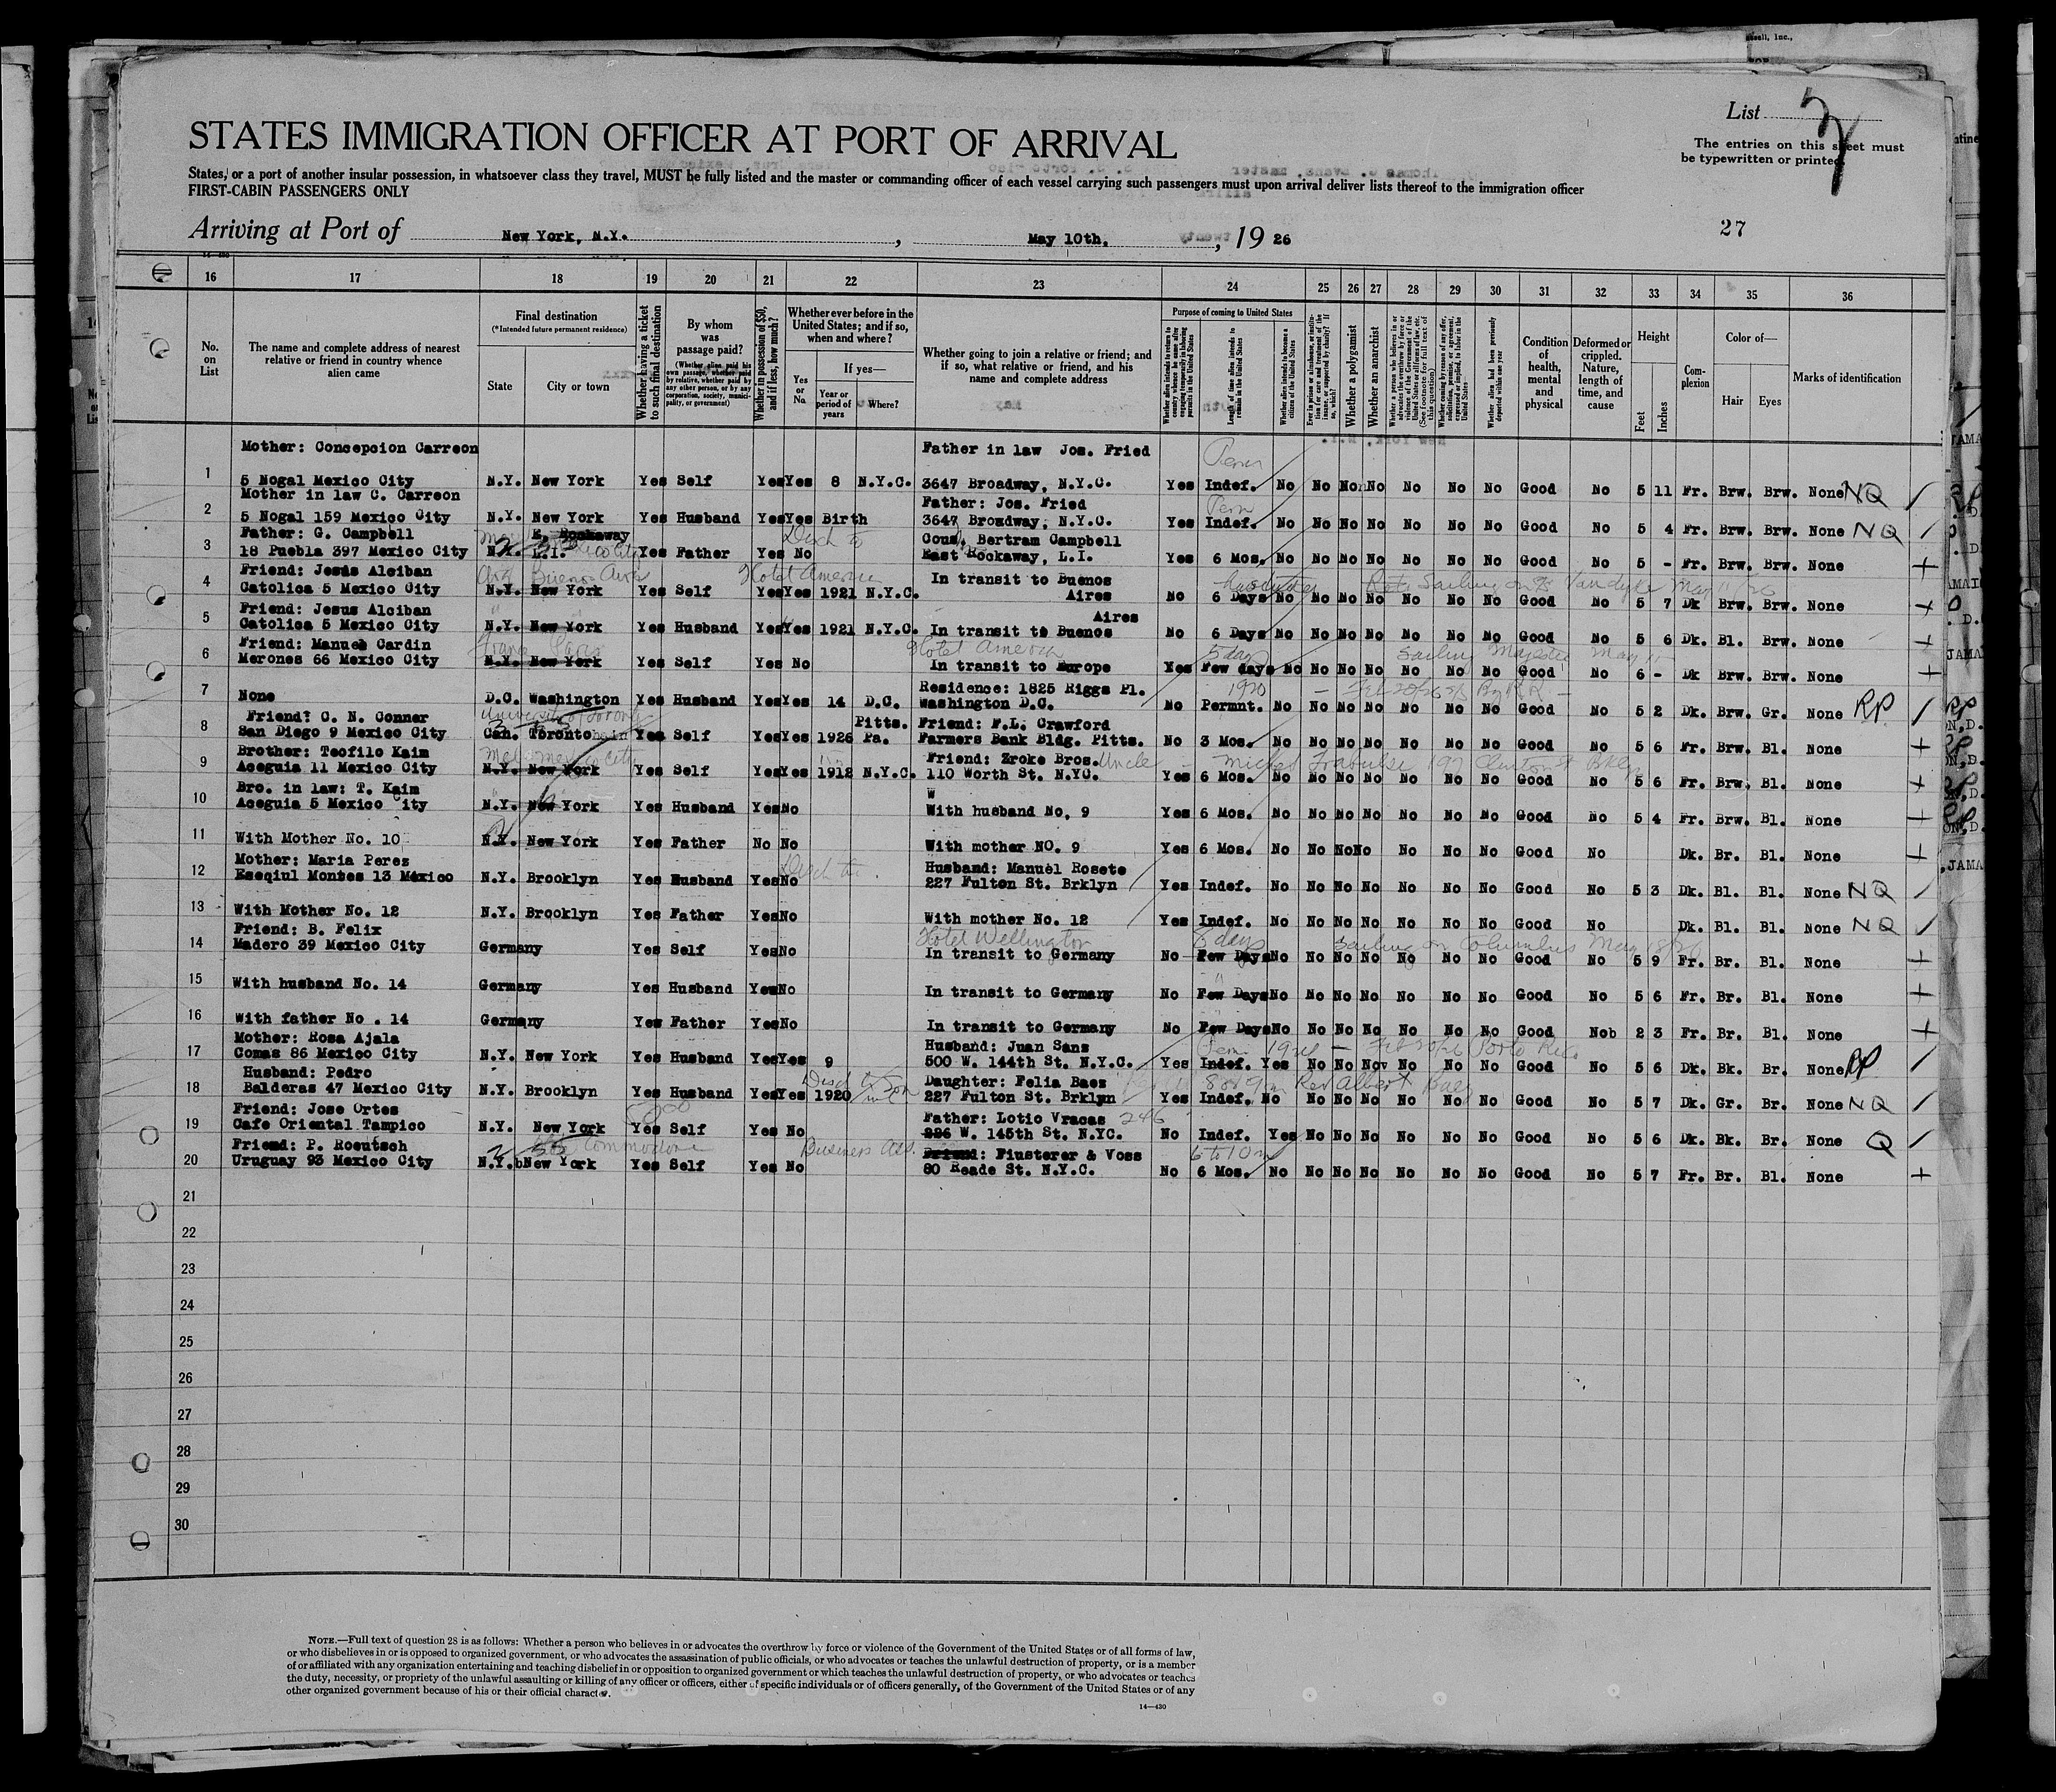 List
STATES IMMIGRATION OFFICER AT PORT OF ARRIVAL
The entries on this sheet must
be typewritten or printed.
States, or a port of another insular possession, in whatsoever class they travel, MUST be fully listed and the master or commanding officer of each vessel carrying such passengers must upon arrival deliver lists thereof to the immigration officer
FIRST-CABIN PASSENGERS ONLY
27
Arriving at Port of New York, N.Y. , May 10th. , 19 26
16 17 18 19 20 21 22 23 24 25 26 27 28 29 30 31 32 33 34 35 36
No. on List
The name and complete address of nearest relative or friend in country whence alien came
Final destination
(*Intended future permanent residence)
State
City or town
Whether having a ticket to such final destination
By whom was passage paid?
(Whether alien paid his own passage, whether paid by relative, whether paid by any other person, or by any corporation, society, municipality, or government)
Whether in possession of $50, and if less, how much?
Whether ever before in the United States; and if so, when and where?
Yes or No
If yes—
Year or period of years
Where?
Whether going to join a relative or friend; and if so, what relative or friend, and his name and complete address
Purpose of coming to United States
Length of time alien intends to remain in the United States
Whether alien intends to become a citizen of the United States
Whether a polygamist
Whether an anarchist
Condition of health, mental and physical
Deformed or crippled. Nature, length of time, and cause
Height
Feet
Inches
Complexion
Color of—
Hair
Eyes
Marks of identification
Mother: Concepcion Carreon Father in law Jos. Fried
1 5 Nogal Mexico City N.Y. New York Yes Self Yes Yes 8 N.Y.C. 3647 Broadway, N.Y.C. Yes Indef. No No No No No No No Good No 5 11 Fr. Brw. Brw. None NQ
Mother in law C. Carreon Father: Jos. Fried
2 5 Nogal 159 Mexico City N.Y. New York Yes Husband Yes Yes Birth 3647 Broadway, N.Y.C. Yes Indef. No No No No No No No Good No 5 4 Fr. Brw. Brw. None NQ
Father: G. Campbell E. Rockaway Cous. Bertram Campbell
3 18 Puebla 397 Mexico City N.Y. L.I. Yes Father Yes No East Rockaway, L.I. Yes 6 Mos. No No No No No No No Good No 5 - Fr. Brw. Brw. None
Friend: Jesus Alciban Buenos Aires Hotel America In transit to Buenos
4 Catolica 5 Mexico City N.Y. New York Yes Self Yes Yes 1921 N.Y.C. Aires No 6 Days No No No No No No No Good No 5 7 Dk Brw. Brw. None
Friend: Jesus Alciban Aires
5 Catolica 5 Mexico City N.Y. New York Yes Husband Yes Yes 1921 N.Y.C. In transit to Buenos No 6 Days No No No No No No No Good No 5 6 Dk. Bl. Brw. None
Friend: Manuel Cardin France Paris Hotel America 5 days Sailing Majestic May 11
6 Merones 66 Mexico City N.Y. New York Yes Self Yes No In transit to Europe Yes Few days No No No No No No No Good No 6 - Dk Brw. Brw. None
Residence: 1825 Riggs Pl. 1920
7 None D.C. Washington Yes Husband Yes Yes 14 D.C. Washington D.C. No Permnt. No No No No No No No Good No 5 2 Dk. Brw. Gr. None RP
Friend: C. N. Conner University of Toronto Pitts. Friend: F.L. Crawford
8 San Diego 9 Mexico City Can. Toronto Yes Self Yes Yes 1926 Pa. Farmers Bank Bldg. Pitts. No 3 Mos. No No No No No No No Good No 5 6 Fr. Brw. Bl. None
Brother: Teofilo Kaim Mex. Mexico City Friend: Zroke Bros. Uncle
9 Aceguia 11 Mexico City N.Y. New York Yes Self Yes Yes 1912 N.Y.C. 110 Worth St. N.YC. Yes 6 Mos. No No No No No No No Good No 5 6 Fr. Brw. Bl. None
Bro. in law: T. Kaim W
10 Aceguia 5 Mexico City N.Y. New York Yes Husband Yes No With husband No. 9 Yes 6 Mos. No No No No No No No Good No 5 4 Fr. Brw. Bl. None
11 With Mother No. 10 N.Y. New York Yes Father No No With mother NO. 9 Yes 6 Mos. No No No No No No No Good No Dk. Br. Bl. None
Mother: Maria Perez Husband: Manuel Rosete
12 Eseqiul Montes 13 Mexico N.Y. Brooklyn Yes Husband Yes No 227 Fulton St. Brklyn Yes Indef. No No No No No No No Good No 5 3 Dk. Bl. Bl. None NQ
13 With Mother No. 12 N.Y. Brooklyn Yes Father Yes No With mother No. 12 Yes Indef. No No No No No No No Good No Dk. Bl. Bl. None NQ
Friend: B. Felix Hotel Wellington 8 days Sailing on Columbus May 18/26
14 Madero 39 Mexico City Germany Yes Self Yes No In transit to Germany No Few Days No No No No No No No Good No 5 9 Fr. Br. Bl. None
15 With husband No. 14 Germany Yes Husband Yes No In transit to Germany No Few Days No No No No No No No Good No 5 6 Fr. Br. Bl. None
16 With father No . 14 Germany Yes Father Yes No In transit to Germany No Few Days No No No No No No No Good Nob 2 3 Fr. Br. Bl. None
Mother: Rosa Ajala Husband: Juan Sans Porto Rico
17 Comas 86 Mexico City N.Y. New York Yes Husband Yes Yes 9 500 W. 144th St. N.Y.C. Yes Indef. Yes No No No No No No Good No 5 6 Dk. Bk. Br. None RP
Husband: Pedro Daughter: Felia Baez Rev Albert Baez
18 Balderas 47 Mexico City N.Y. Brooklyn Yes Husband Yes Yes 1920 227 Fulton St. Brklyn Yes Indef. No No No No No No No Good No 5 7 Dk. Gr. Br. None NQ
Friend: Jose Ortes Father: Lotio Vracas 246
19 Cafe Oriental Tampico N.Y. New York Yes Self Yes No W. 145th St. N.YC. No Indef. Yes No No No No No No Good No 5 6 Dk. Bk. Br. None Q
Friend: P. Roeutsch Commodore Business Friend: Fiusterer & Voss 6 to 10 m
20 Uruguay 93 Mexico City N.Y. New York Yes Self Yes No 80 Reade St. N.Y.C. No 6 Mos. No No No No No No No Good No 5 7 Fr. Br. Bl. None
21
22
23
24
25
26
27
28
29
30
NOTE.—Full text of question 28 is as follows: Whether a person who believes in or advocates the overthrow by force or violence of the Government of the United States or of all forms of law,
or who disbelieves in or is opposed to organized government, or who advocates the assassination of public officials, or who advocates or teaches the unlawful destruction of property, or is a member
of or affiliated with any organization entertaining and teaching disbelief in or opposition to organized government or which teaches the unlawful destruction of property, or who advocates or teaches
the duty, necessity, or propriety of the unlawful assaulting or killing of any officer or officers, either of specific individuals or of officers generally, of the Government of the United States or of any
other organized government because of his or their official character.
14—430